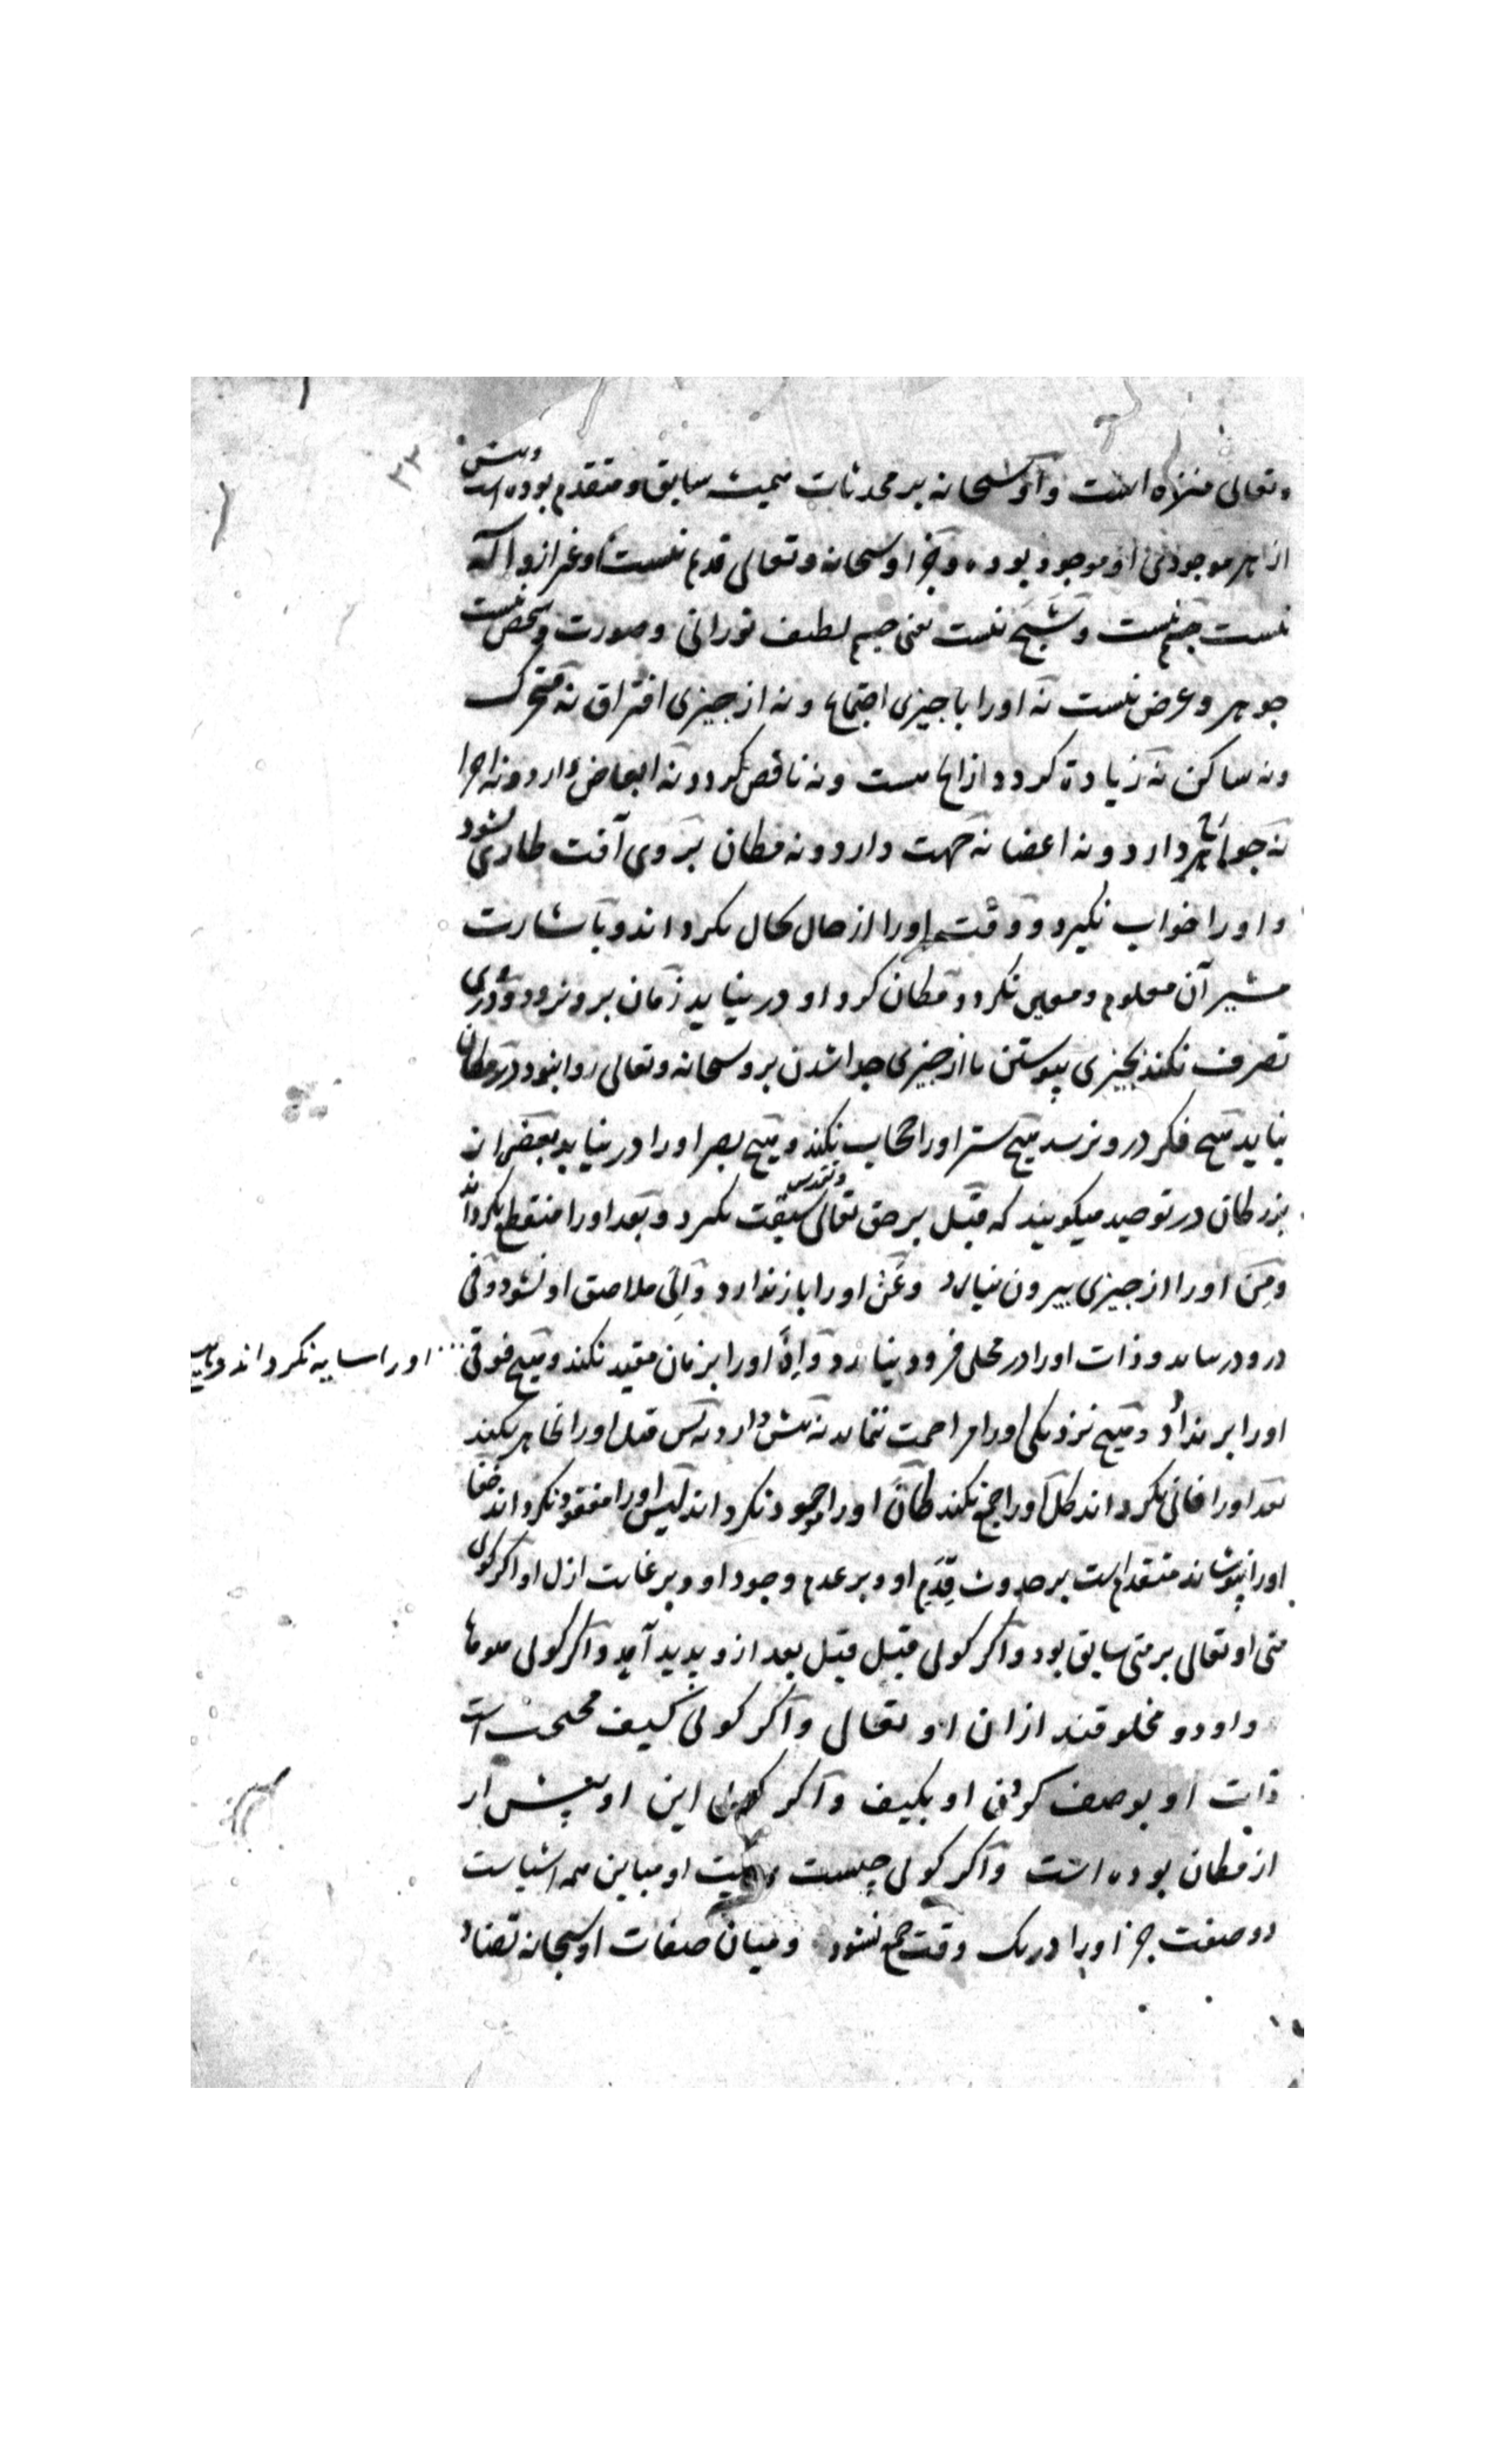 ۳۳
وتعالی منزه است واو سبحانه بر محدثات همیشه سابق و متقدم بوده است وپیش
از هر موجودی او موجود بوده وجز او سبحانه وتعالی قدیم نیست وغیر ازو اله
نیست جسم نیست وشبح نیست یعنی جسم لطیف نورانی وصورت وشخص نیست
جوهر وعرض نیست نه اورا با چیزی اجتماع ونه از چیزی افتراق نه متحرک
ونه ساکن نه زیادة کردد ونه ناقص کردد نه ابعاض دارد ونه اجزا
نه جواهر دارد ونه اعضا نه جهت دارد ونه مکان بروی آفت طاری نشود
واورا خواب نکیرد ووقت اورا از حال بحال نکرداند وباشارت
مشیر آن معلوم ومعین نکردد مکان کرد او درنیاید زمان برو نرود ودروی
تصرف نکند بچیزی پیوستن یا از چیزی جدا شدن برو سبحانه وتعالی روا نبود در مکان
نیاید هیچ فکر درو نرسد هیچ ستر اورا حجاب نکند وهیچ بصر اورا درنیابد بعضی از
بزرکان در توحید میکویند که قبل بر حق تعالی وتقدس سبقت نکیرد وبعد اورا منقطع نکرداند
ومِن اورا از چیزی بیرون نیارد وعَن اورا باز ندارد وإلی ملاصق او نشود وفی
درو درنیاید وذات اورا در محلی فرود نیارد وإذ اورا بزمان مقید نکند وهیچ فوقی
اورا سایه نکرداند وهیچ
اورا بر ندارد وهیچ نزدیکی اورا مزاحمت ننماید نه پیش دارد نه پس قبل اورا ظاهر نکند
بعد اورا فانی نکرداند کل اورا جمع نکند کان اورا موجود نکرداند لیس اورا مفقود نکرداند خفا
اورا نپوشاند متقدم است بر حدوث قِدَم او وبر عدم وجود او وبر غایت ازل او اکر کوئی
متی او تعالی بر متی سابق بود واکر کوئی قبل قبل بعد ازو پدید آید واکر کوئی هو ها
و او دو مخلوقند از ان او تعالی واکر کوئی کیف محتجب است
ذات او بوصف کوئی او بکیف واکر کوئی این او پیش از
از مکان بوده است واکر کوئی چیست ماهیت او مباین همه اشیاست
دو صفت جز اورا در یک وقت جمع نشود ومیان صفات او سبحانه تضاد